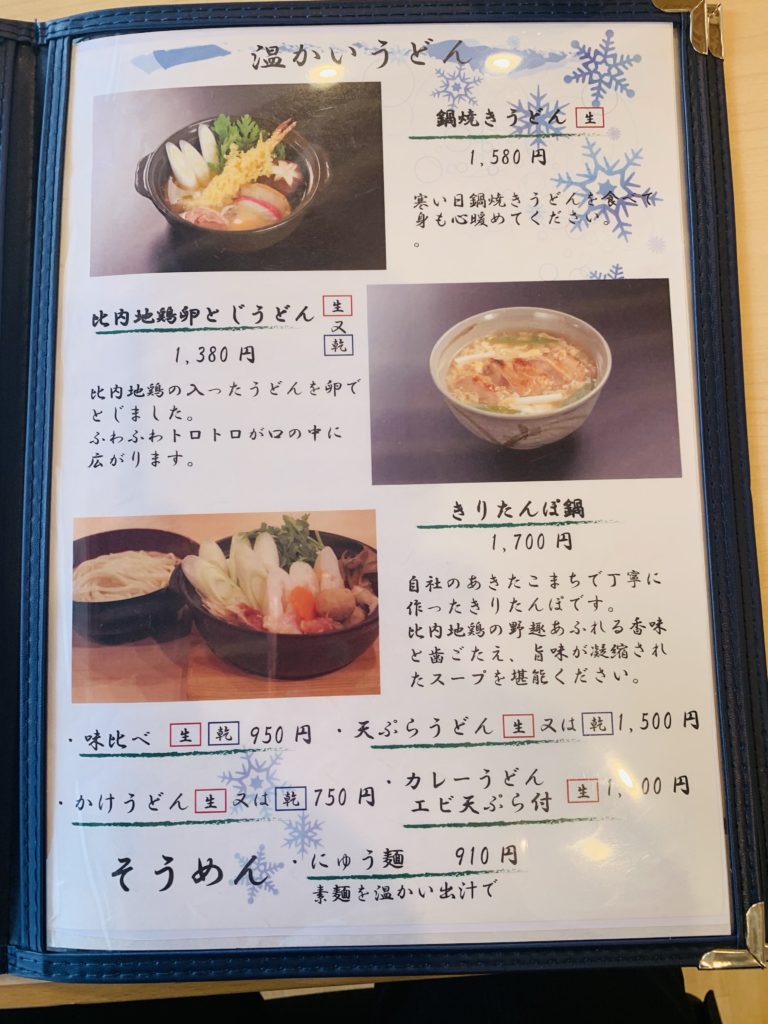 温かいうどん
鍋焼きうどん 生
1,580 円
寒い日鍋焼きうどんを食べて
身も心暖めてください。
。
比内地鶏卵とじうどん 生
又
乾
1,380 円
比内地鶏の入ったうどんを卵で
とじました。
ふわふわトロトロが口の中に
広がります。
きりたんぽ鍋
1,700 円
自社のあきたこまちで丁寧に
作ったきりたんぽです。
比内地鶏の野趣あふれる香味
と歯ごたえ、旨味が凝縮され
たスープを堪能ください。
・味比べ 生 乾 950 円
・天ぷらうどん 生 又は 乾 1,500 円
・かけうどん 生 又は 乾 750 円
・カレーうどん
エビ天ぷら付 生 円
そうめん
・にゅう麺 910 円
素麺を温かい出汁で